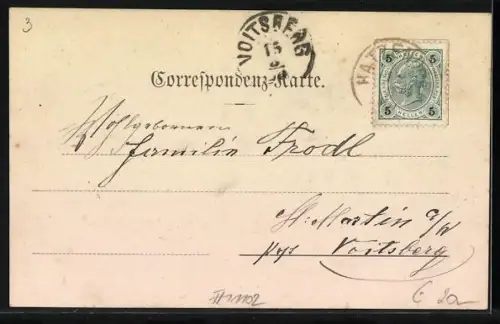 3
VOITSBERG
15
HAT
5 5
5 5
Correspondenz-Karte.
Wohlgebornen
Familie Trodl
St. Martin a/W
Voitsberg